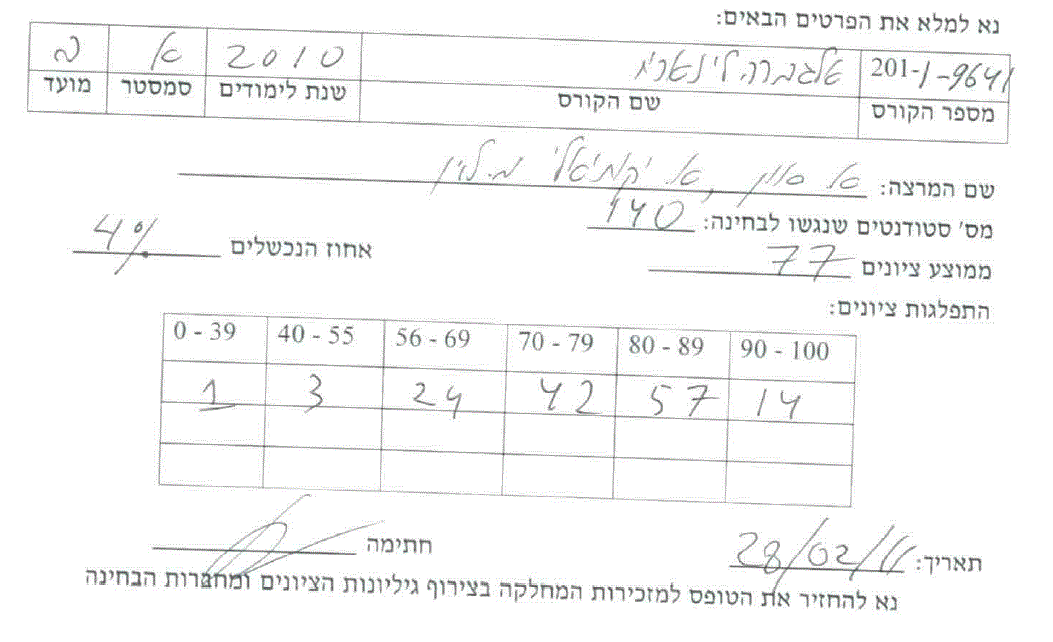 נא למלא את הפרטים הבאים:
201-1-9641 אלגברה לינארית 2010 א ב
מספר הקורס שם הקורס שנת לימודים סמסטר מועד
שם המרצה: א
מס' סטודנטים שנגשו לבחינה: 140
ממוצע ציונים 77 אחוז הנכשלים 4%
התפלגות ציונים:
0 - 39 40 - 55 56 - 69 70 - 79 80 - 89 90 - 100
1 3 24 42 57 14
תאריך: 28/02/11 חתימה
נא להחזיר את הטופס למזכירות המחלקה בצירוף גיליונות הציונים ומחברות הבחינה